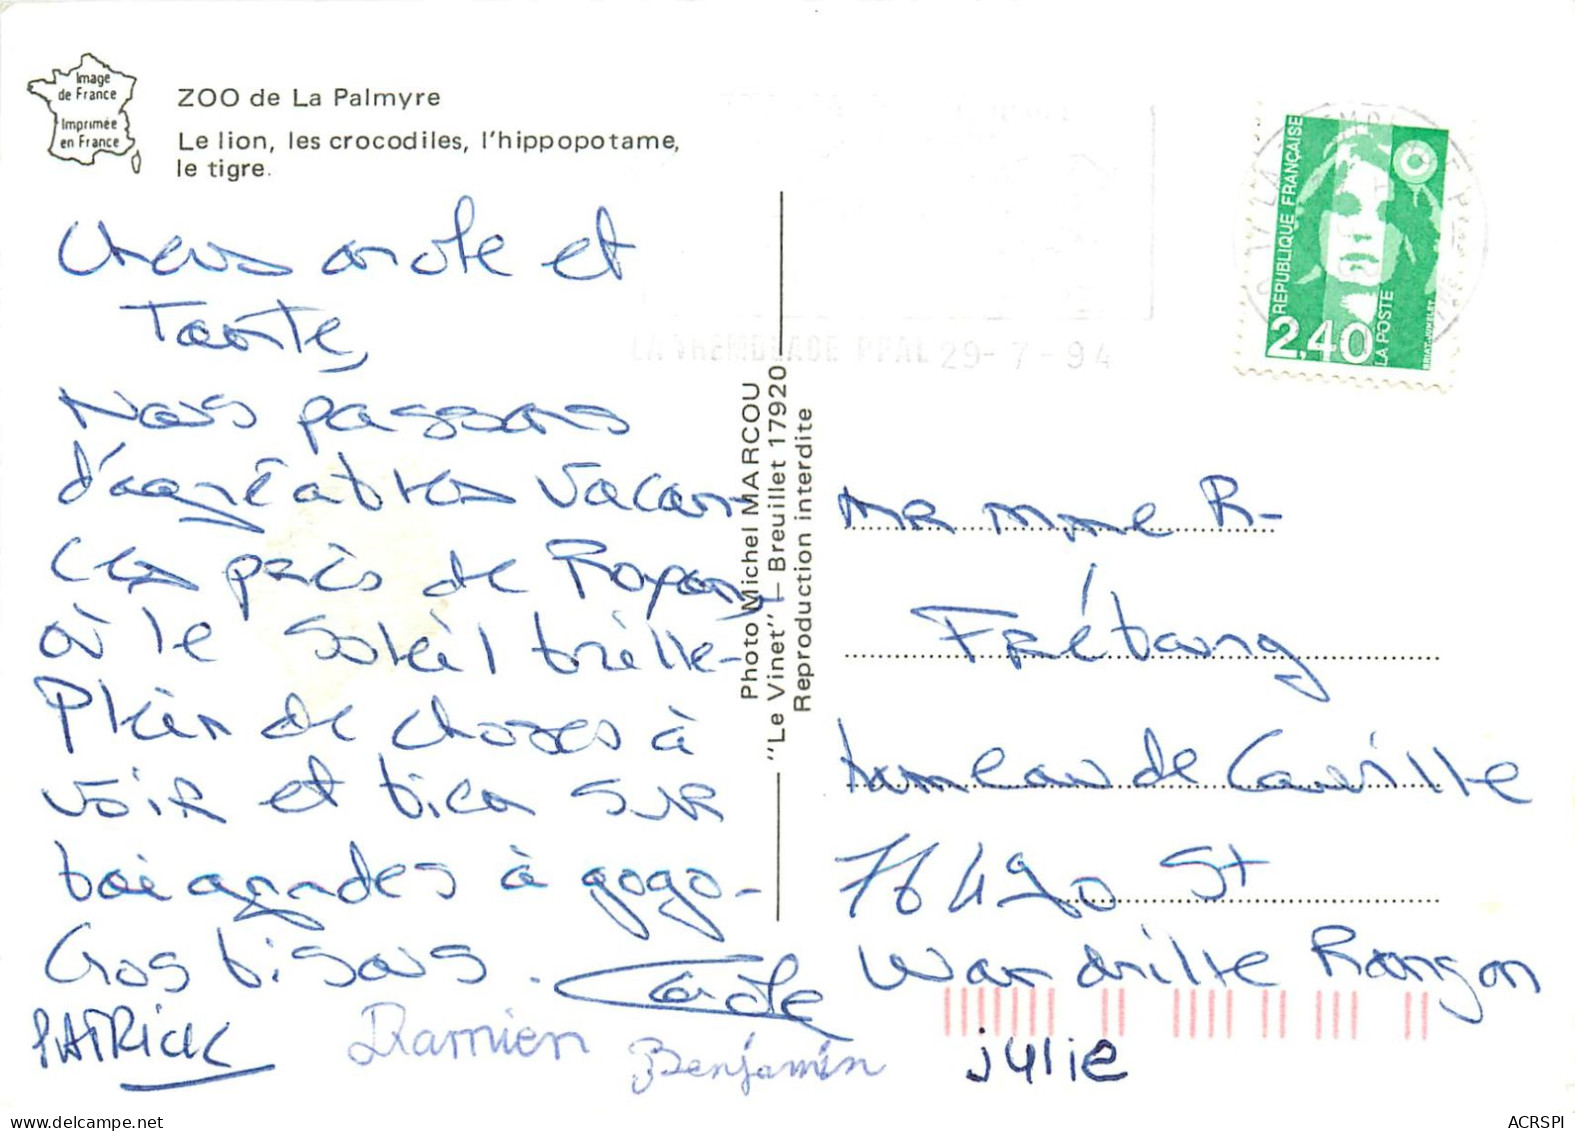 Image
de France
Imprimée
en France
ZOO de La Palmyre
Le lion, les crocodiles, l'hippopotame,
le tigre.
oncle et
Tante,
Nous passons
d'agréables vacan-
ces près de Royan,
où le soleil brille-
Plein de choses à
voir et bien sur
baignades à gogo-
Gros bisous.
Carole
PATRICK
Damien
Benjamin
Julie
Photo Michel MARCOU
"Le Vinet" - Breuillet 17920
Reproduction interdite
LA TREMBLADE PPAL 29-7-94
REPUBLIQUE FRANÇAISE
2,40
LA POSTE
BRIAT-JUMELET
Mr Mme R-
Frébourg
hameau de Cauville
76490 St
Wandrille Rançon
ACRSPI